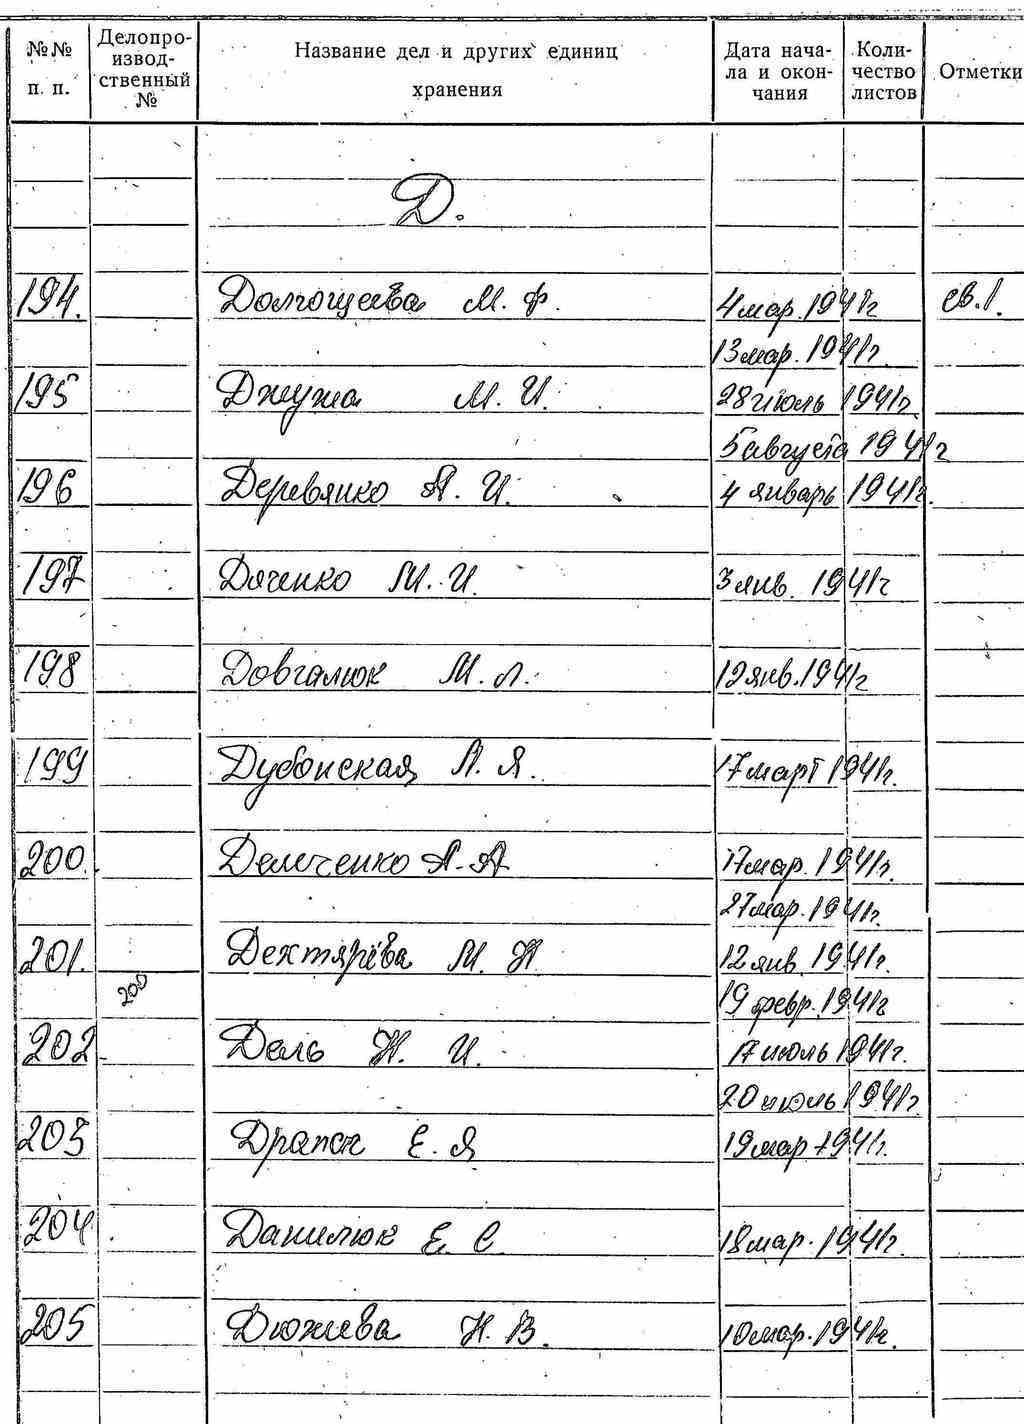 №№ п. п. Делопро-извод-ственный № Название дел и других единиц хранения Дата нача-ла и окон-чания Коли-чество листов Отметки
Д.
194. Долгощеева М. Ф. 4 мар. 1941г св. 1.
13 мар. 1941г.
195 Джужа М. И. 28 июль 1941г.
5 августа 1941г
196 Деревянко А. И. 4 январь 1941г.
197 Дяченко М. И. 3 янв. 1941г
198 Довгалюк М. Л. 12 янв. 1941г
199 Л. Я. 17 март 1941г.
200. Демченко А. А 17 мар. 1941г.
27 мар. 1941г.
201. Дехтярёва М. Н 12 янв. 1941г.
200 19 февр. 1941г
202 Дель Н. И. 17 июль 1941г.
20 июль 1941г
203 Драпак Е. Я 19 мар 1941г.
204 Данилюк Е. С. 18 мар. 1941г.
205 Дюжева Н. В. 10 мар. 1941г.